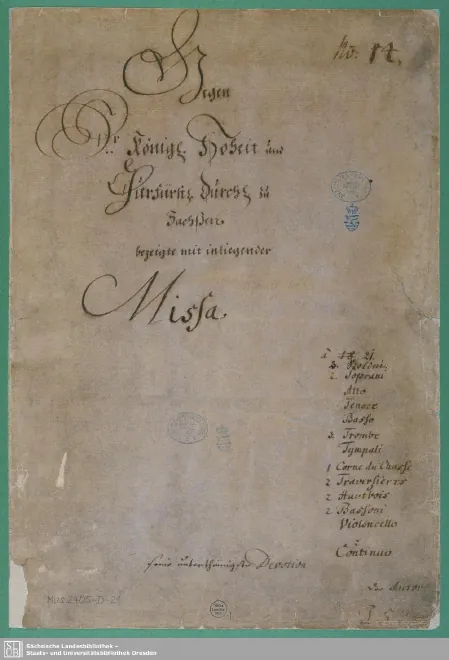 No: 14.
Gegen
Sr. Königl. Hoheit und
Churfürstl. Durchl. zu
Sachßen.
bezeigte mit inliegender
Missa.
à 21.
3. Violini
2. Soprani
Alto
Tenore
Basso
3. Trombe
Tympali
1 Corne du Chasse
2 Traversieres
2 Hautbois
2 Bassoni
Violoncello
e
Continuo
seine unterthänigste Devotion
der Autor
J. S.
Mus. 2405-D-21
SLUB
Sächsische Landesbibliothek –
Staats- und Universitätsbibliothek Dresden